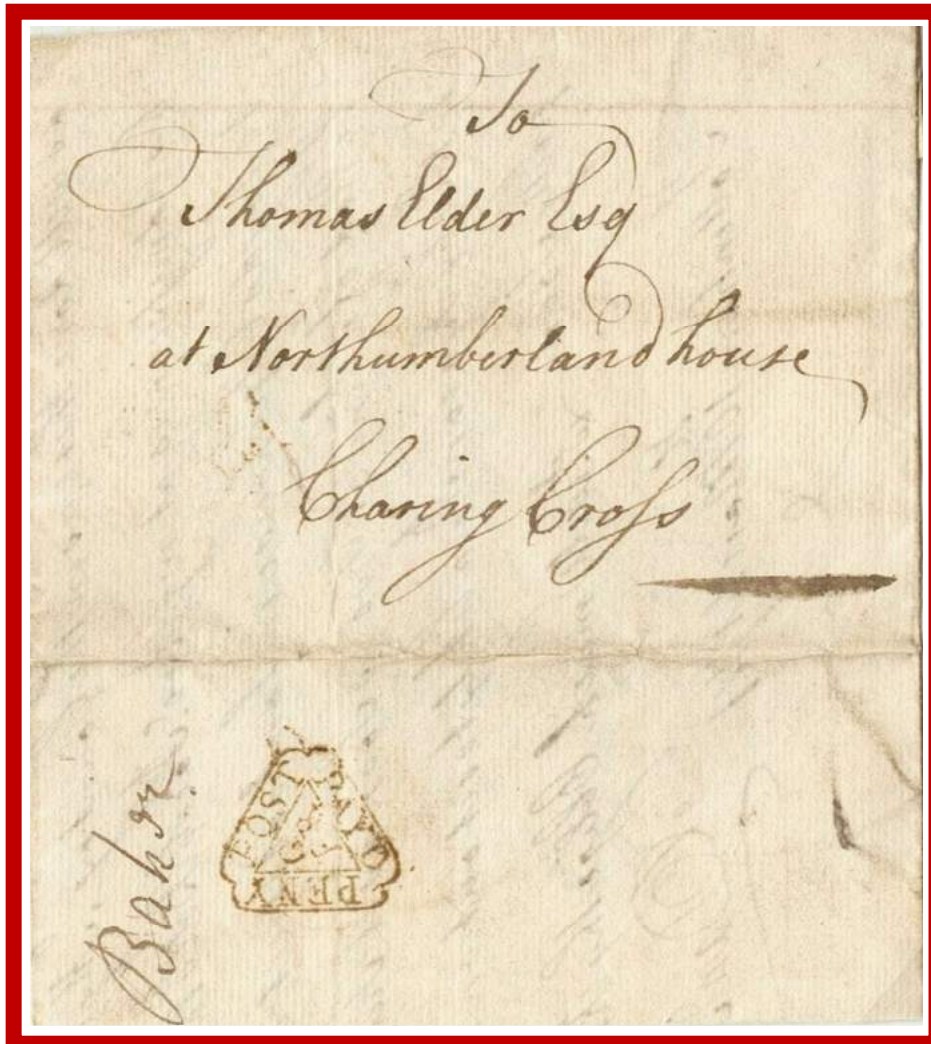 To
Thomas Elder Esq
at Northumberland house
Charing Croſs
Baker
PENY
POST
PAYD